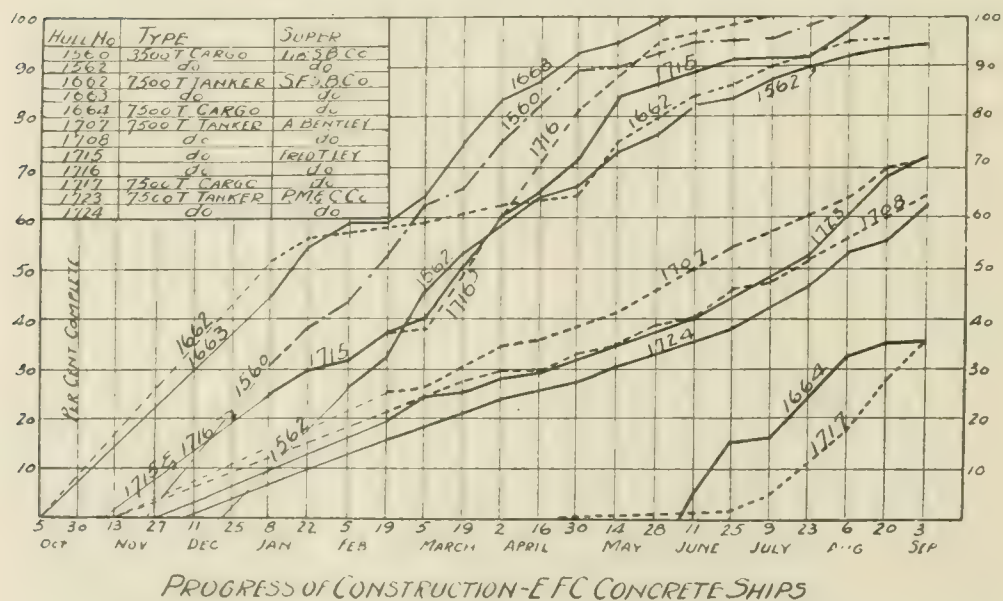 HULL NO TYPE SUPER
1560 3500 T CARGO LIB.S.B.CO
1562 do do
1662 7500 T TANKER S.F.S.B.CO.
1663 do do
1664 7500 T CARGO do
1707 7500 T TANKER A BENTLEY
1708 do do
1715 do FRED T LEY
1716 do do
1717 7500 T CARGO do
1723 7500 T TANKER P.M.&C CO.
1724 do do
100 100
90 90
80 80
70 70
60 60
50 50
40 40
30 30
20 20
10 10
PER CENT COMPLETE
1668
1560
1716
1715
1662
1562
1662
1663
1560
1715
1562
1716
1707
1723
1708
1715 & 1716
1562
1724
1664
1717
5 30 13 27 11 25 8 22 5 19 5 19 2 16 30 14 28 11 25 9 23 6 20 3
OCT NOV DEC JAN FEB MARCH APRIL MAY JUNE JULY AUG SEP
PROGRESS OF CONSTRUCTION-EFC CONCRETE SHIPS